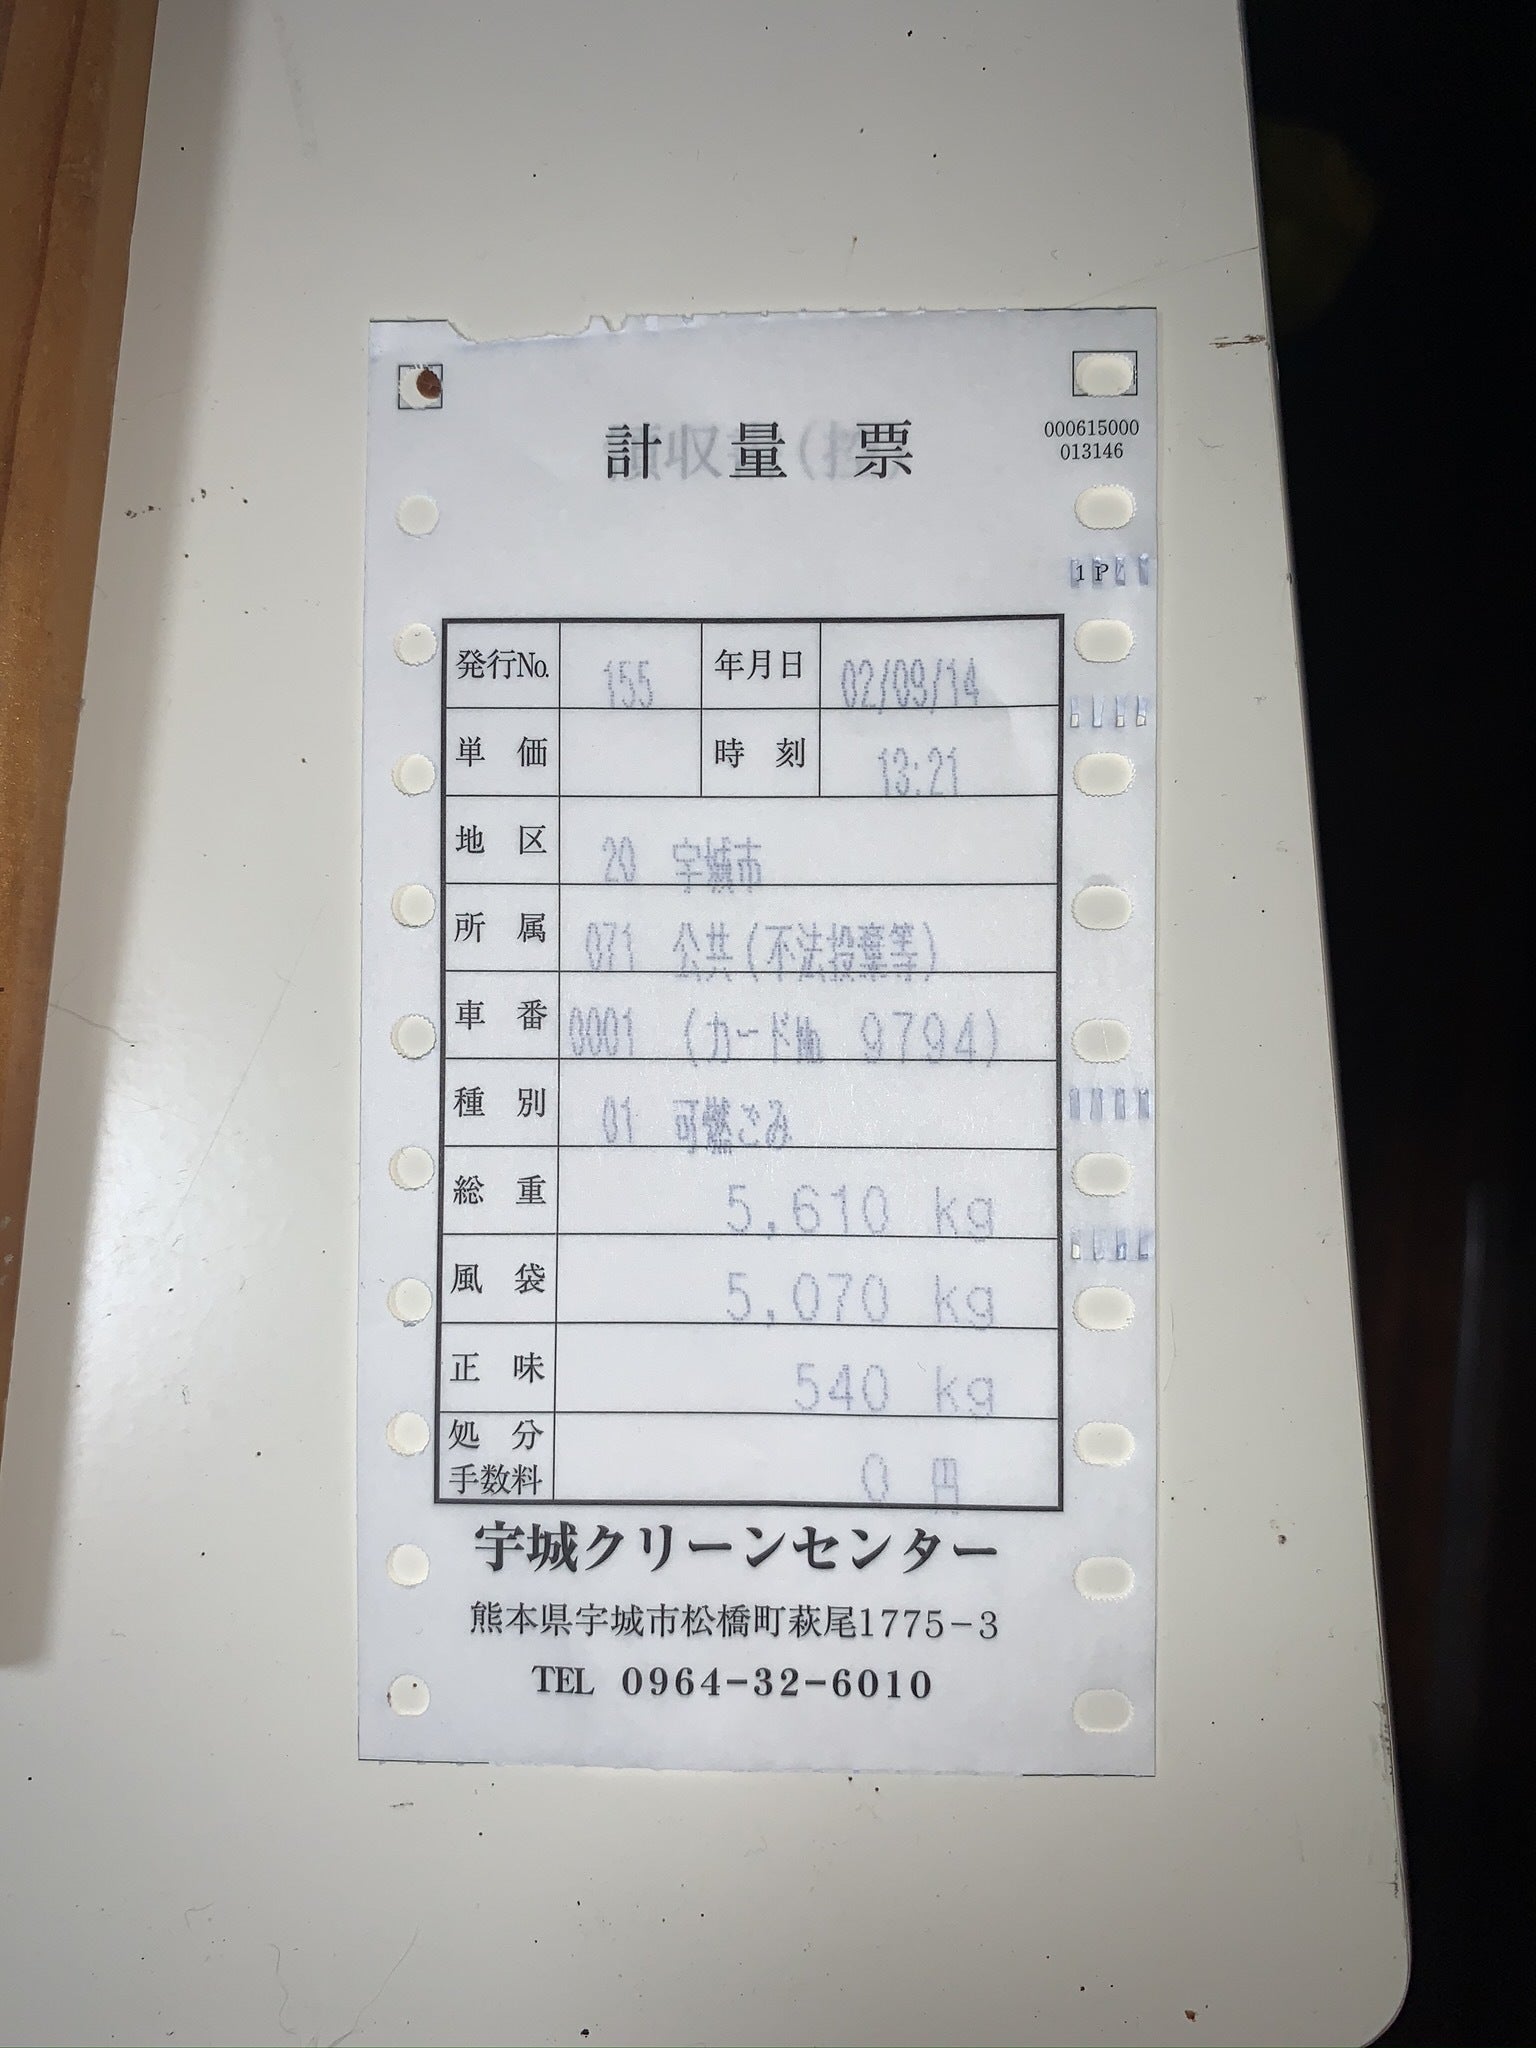 計量票
000615000
013146
1P
発行No. 155 年月日 02/09/14
単価 時刻 13:21
地区 20 宇城市
所属 071 公共(不法投棄等)
車番 0001 (カード№ 9794)
種別 01 可燃ごみ
総重 5,610 kg
風袋 5,070 kg
正味 540 kg
処分
手数料 0 円
宇城クリーンセンター
熊本県宇城市松橋町萩尾1775-3
TEL 0964-32-6010